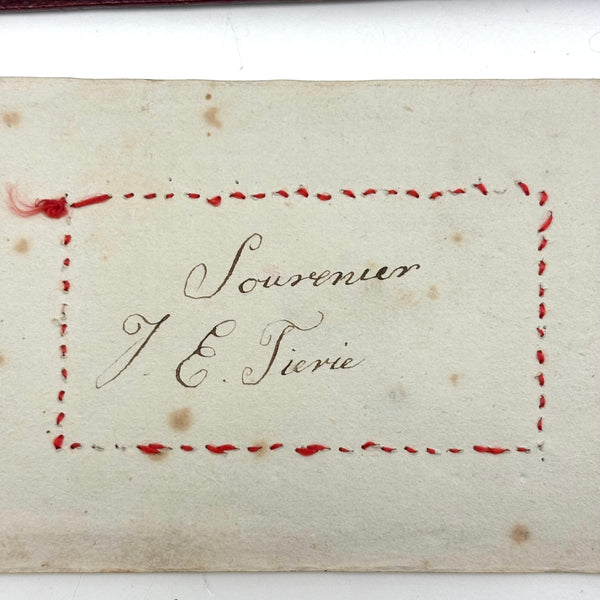 Souvenier
J. E. Tierie